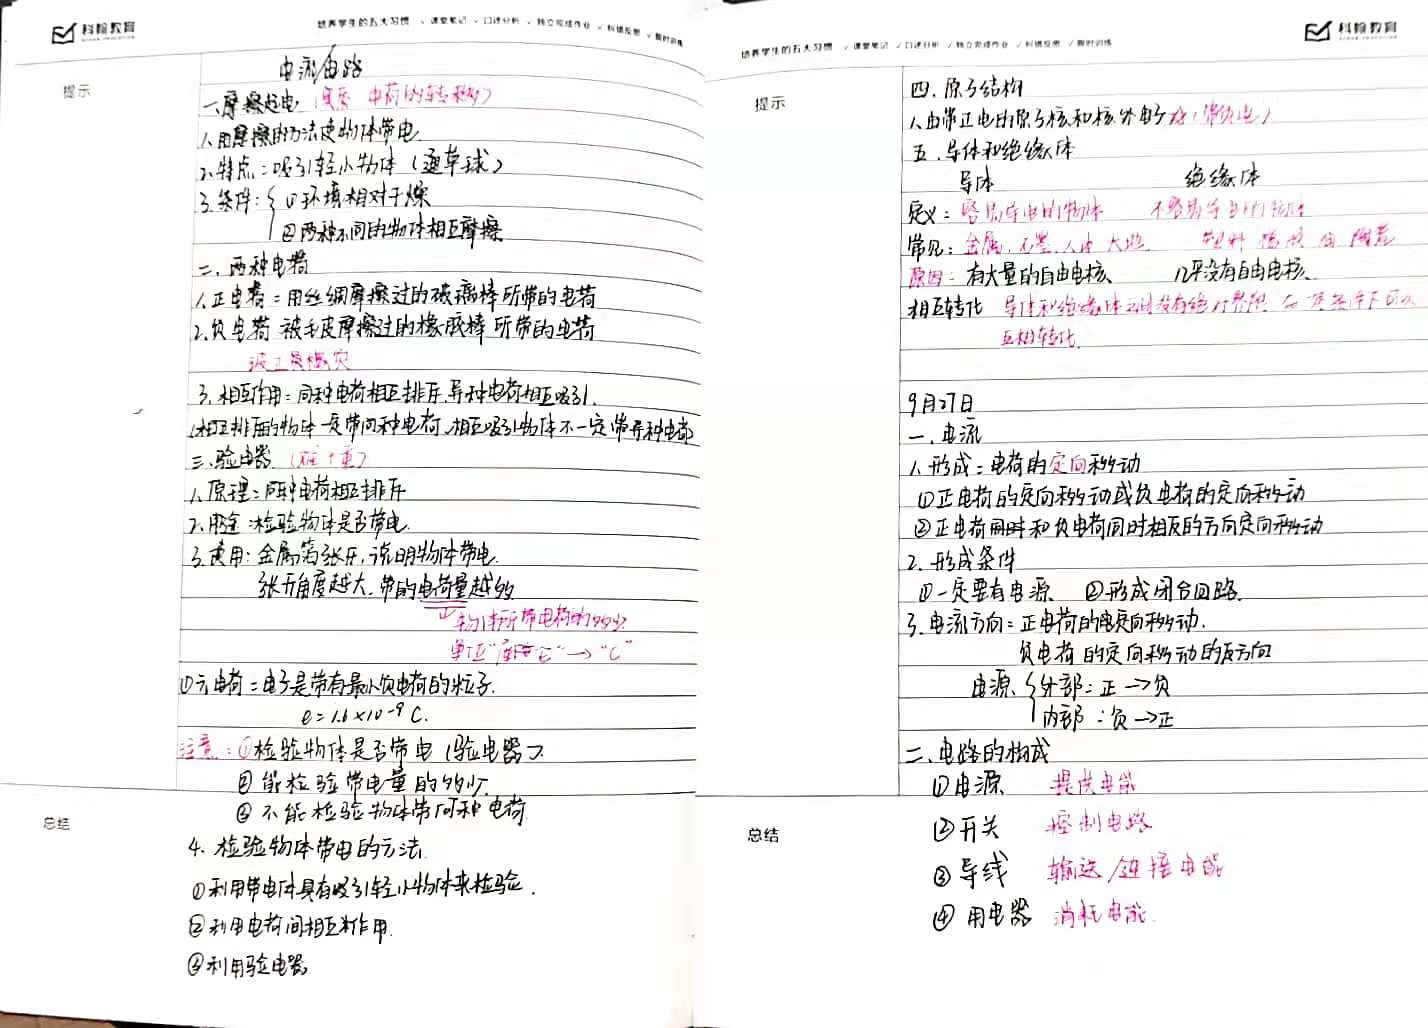 科翰教育
培养学生的五大习惯 ✓课堂笔记 ✓口述分析 ✓独立完成作业 ✓纠错反思 ✓限时训练
提示
电流/电路
一.摩擦起电 (实质 电荷的转移)
1.用摩擦的方法使物体带电
2.特点：吸引轻小物体（通草球）
3.条件：①环境相对干燥
②两种不同的物体相互摩擦
二.两种电荷
1.正电荷：用丝绸摩擦过的玻璃棒所带的电荷
2.负电荷 被毛皮摩擦过的橡胶棒所带的电荷
3.相互作用：同种电荷相互排斥.异种电荷相互吸引.
相互排斥的物体一定带同种电荷.相互吸引物体不一定带异种电荷
三.验电器 (难+重)
1.原理：同种电荷相互排斥
2.用途：检验物体是否带电.
3.使用：金属箔张开,说明物体带电.
张开角度越大.带的电荷量越多
物体所带电荷的多少.
单位"库仑"→"C"
①元电荷：电子是带有最小负电荷的粒子.
e=1.6×10⁻⁹C.
注意：①检验物体是否带电（验电器）.
②能检验带电量的多少.
③不能检验物体带何种电荷
总结
4.检验物体带电的方法.
①利用带电体具有吸引轻小物体来检验.
②利用电荷间相互作用.
③利用验电器
科翰教育
培养学生的五大习惯 ✓课堂笔记 ✓口述分析 ✓独立完成作业 ✓纠错反思 ✓限时训练
提示
四.原子结构
1.由带正电的原子核和核外电子 (带负电)
五.导体和绝缘体
导体 绝缘体
定义：容易导电的物体 不容易导电的物体
常见：金属.石墨.人体 大地 塑料 橡胶 油 陶瓷
原因：有大量的自由电核、 几乎没有自由电核、
相互转化 导体和绝缘体之间没有绝对界限 在一定条件下可以
互相转化.
9月27日
一.电流
1.形成：电荷的定向移动
①正电荷的定向移动或负电荷的定向移动
②正电荷同时和负电荷同时相反的方向定向移动
2.形成条件
①一定要有电源 ②形成闭合回路.
3.电流方向：正电荷的定向移动.
负电荷的定向移动的反方向
电源 外部：正→负
内部：负→正
二.电路的构成
①电源 提供电能
总结
②开关 控制电路
③导线 输送/连接电能
④用电器 消耗电能.